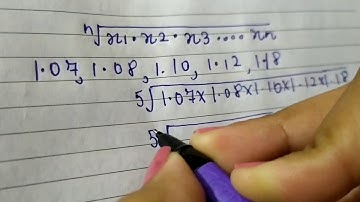 n√x1·x2·x3....xn
1.07, 1.08, 1.10, 1.12, 1.18
5√1.07×1.08×1.10×1.12×1.18
5√